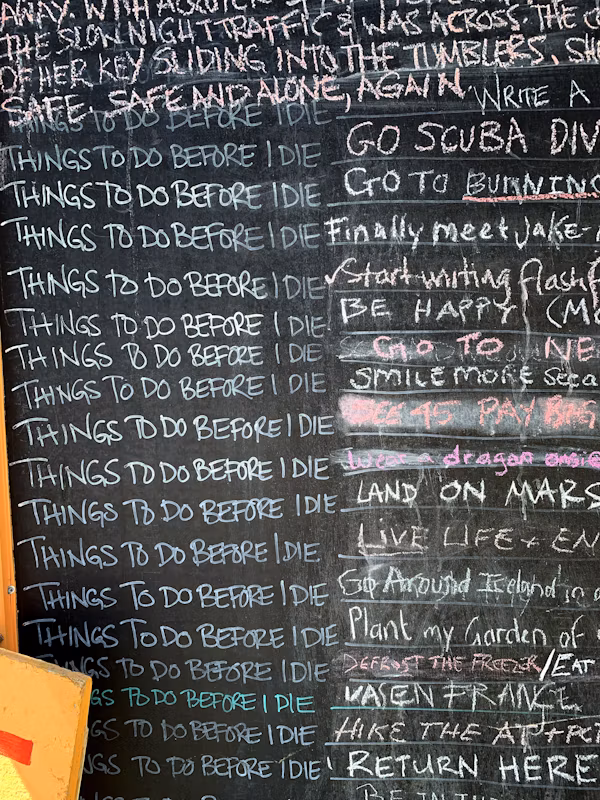 AWAY. WITH
THE SLOW NIGHT TRAFFIC & WAS ACROSS. THE
OF HER KEY SLIDING INTO THE TUMBLERS, SHE
SAFE. SAFE AND ALONE, AGAIN.
THINGS TO DO BEFORE I DIE WRITE A
THINGS TO DO BEFORE I DIE GO SCUBA DIV
THINGS TO DO BEFORE I DIE GO TO BURNING
THINGS TO DO BEFORE I DIE Finally meet Jake-
THINGS TO DO BEFORE I DIE ✓Start writing flash
THINGS TO DO BEFORE I DIE BE HAPPY (MO
THINGS TO DO BEFORE I DIE GO TO NE
THINGS TO DO BEFORE I DIE SMILE MORE
THINGS TO DO BEFORE I DIE 45 PAY
THINGS TO DO BEFORE I DIE Wear a dragon onsie
THINGS TO DO BEFORE I DIE LAND ON MARS
THINGS TO DO BEFORE I DIE LIVE LIFE + EN
THINGS TO DO BEFORE I DIE Go Around Iceland in a
THINGS TO DO BEFORE I DIE Plant my Garden of
THINGS TO DO BEFORE I DIE DEFROST THE FREEZER/EAT
GS TO DO BEFORE I DIE VASEN FRANCE
GS TO DO BEFORE I DIE HIKE THE AT + PCT
NGS TO DO BEFORE I DIE RETURN HERE
BE IN